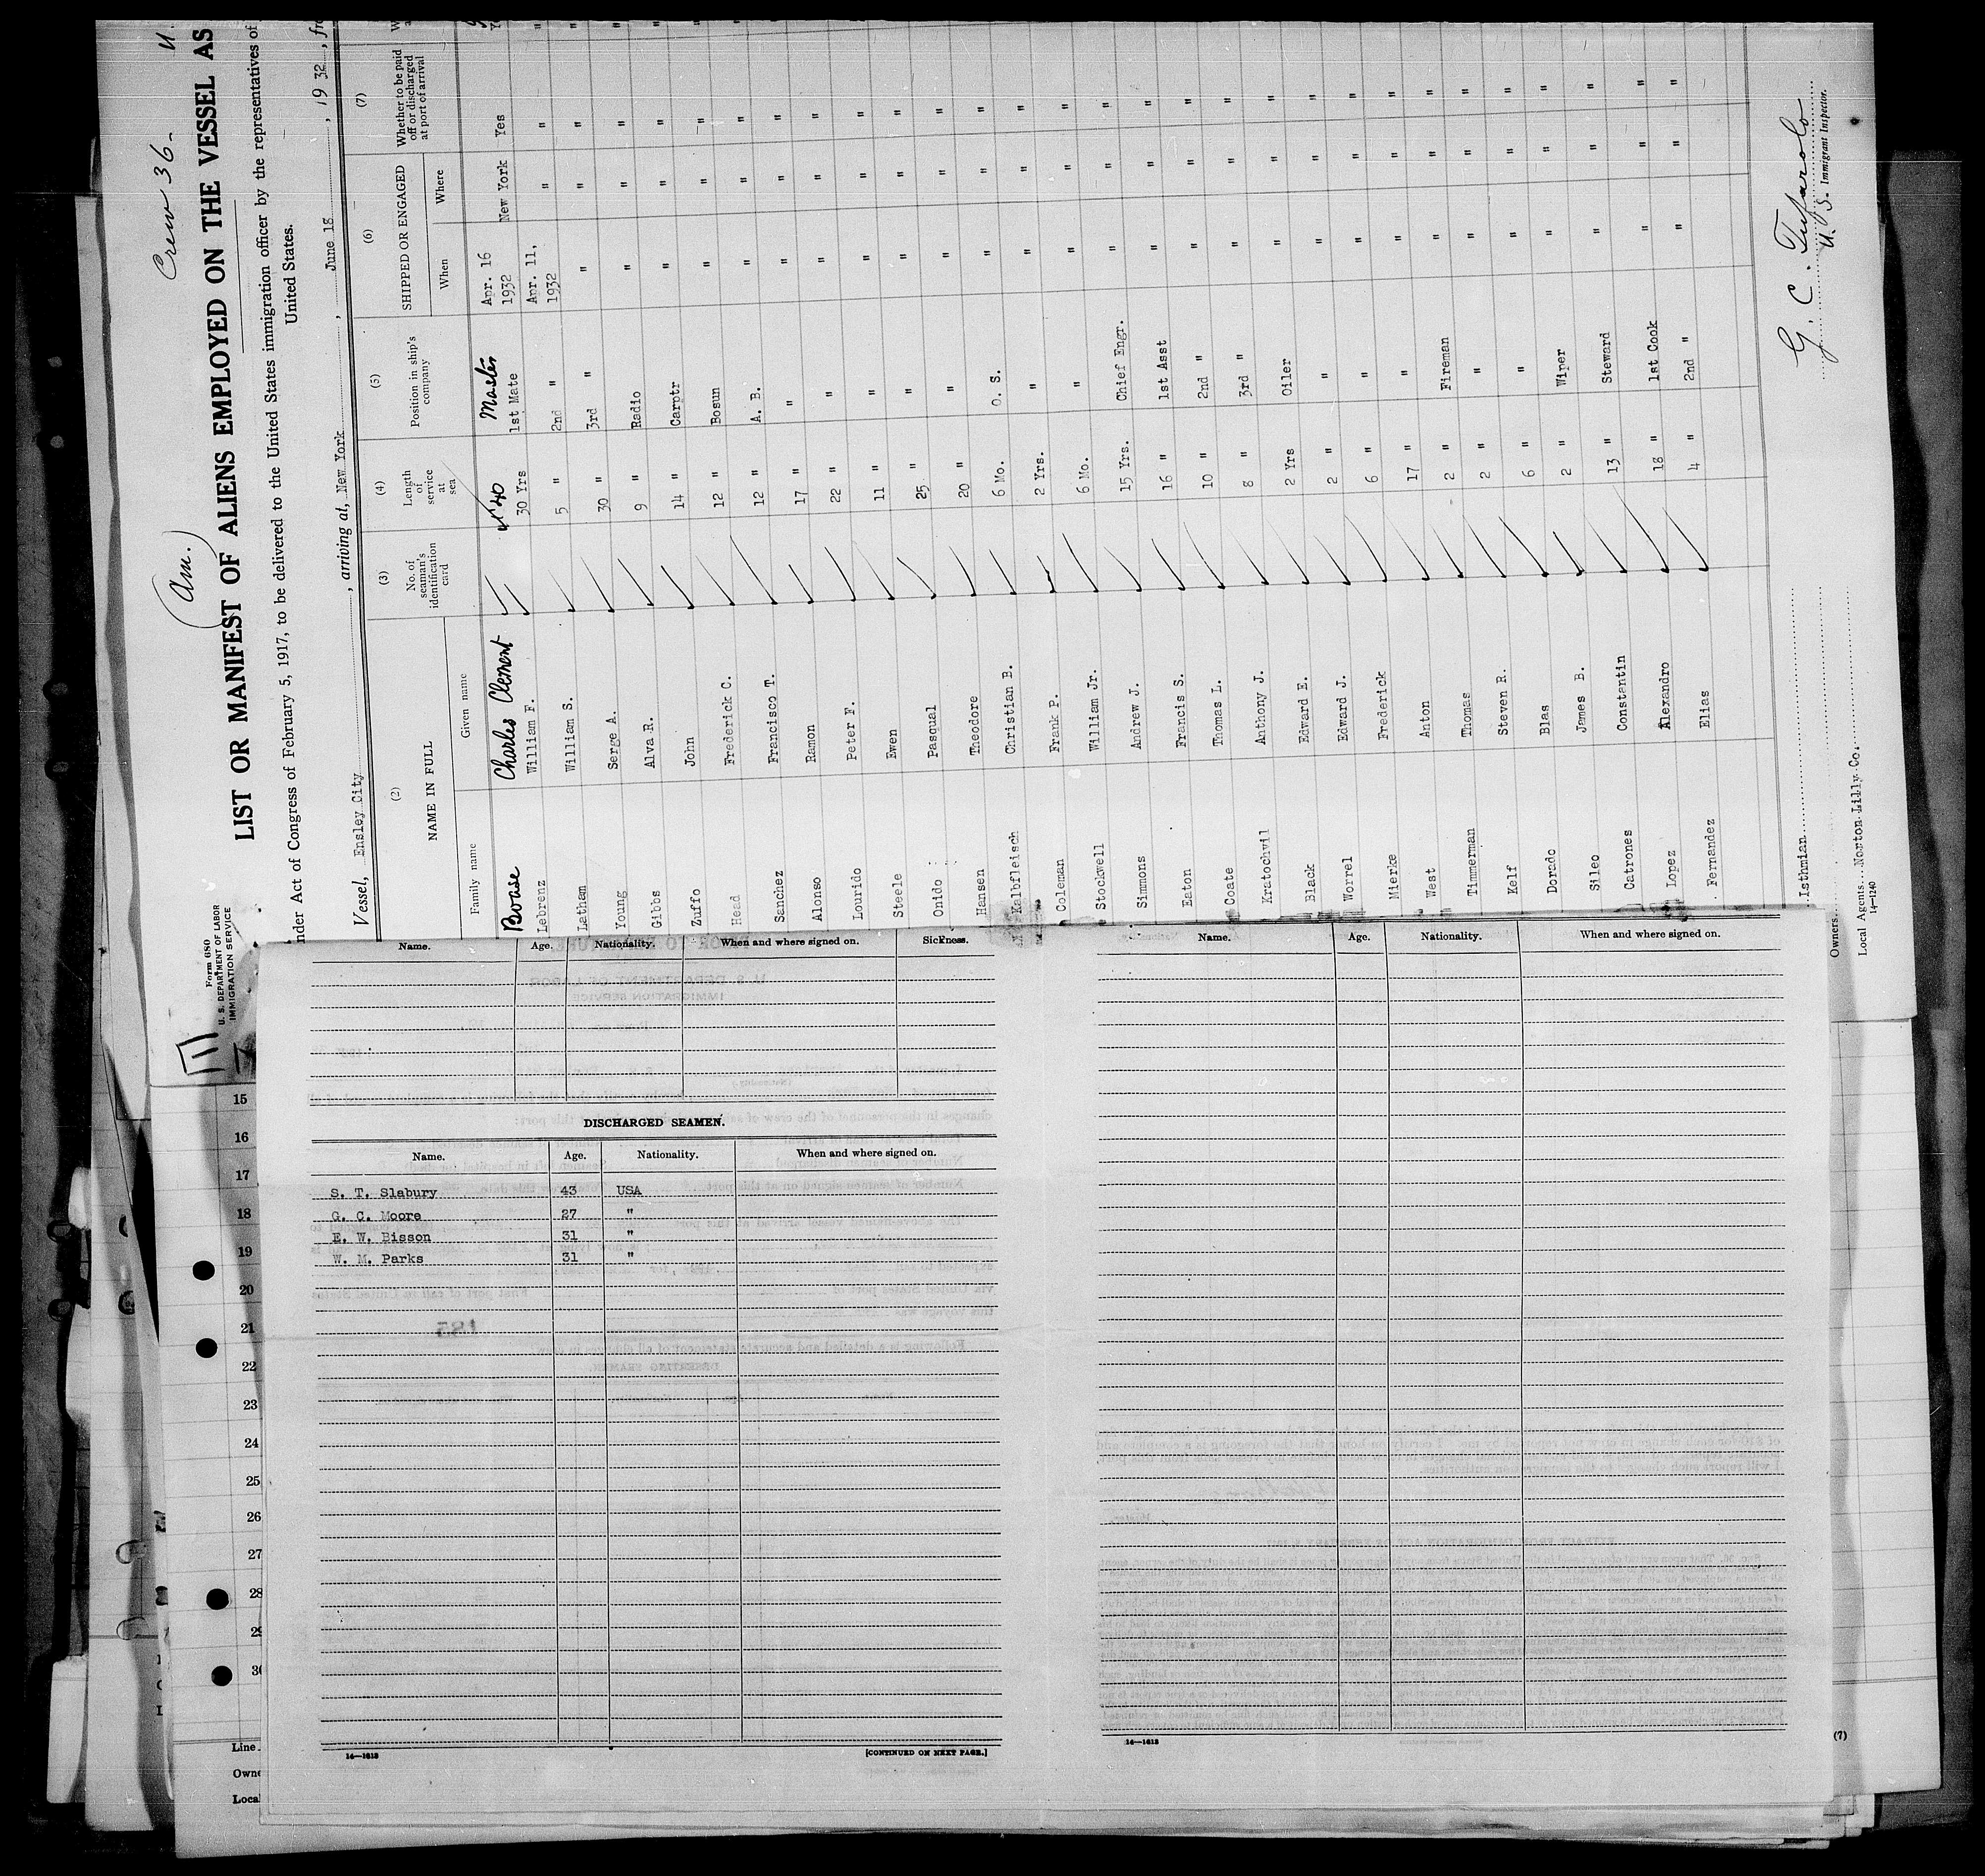 Crew 36 -
(Am.)
Form 680
U. S. DEPARTMENT OF LABOR
IMMIGRATION SERVICE
LIST OR MANIFEST OF ALIENS EMPLOYED ON THE VESSEL AS
nder Act of Congress of February 5, 1917, to be delivered to the United States immigration officer by the representatives of
United States.
Vessel, Ensley City, arriving at, New York, June 18, 1932, fro
(2) (3) (4) (5) (6) (7)
NAME IN FULL
Family name Given name
No. of seaman's identification card
Length of service at sea
Position in ship's company
SHIPPED OR ENGAGED
When Where
Whether to be paid off or discharged at port of arrival
Boase Charles Clement 40 Master Apr. 16 1932 New York Yes
Lebrenz William F. 30 Yrs 1st Mate Apr. 11, 1932 " "
Latham William S. 5 " 2nd " " " "
Young Serge A. 30 " 3rd " " " "
Gibbs Alva R. 9 " Radio " " "
Zuffo John 14 " Carptr " " "
Head Frederick C. 12 " Bosun " " "
Sanchez Francisco T. 12 " A. B. " " "
Alonso Ramon 17 " " " " "
Lourido Peter F. 22 " " " " "
Steele Ewen 11 " " " " "
Onido Pasqual 25 " " " " "
Hansen Theodore 20 " " " " "
Kalbfleisch Christian B. 6 Mo. O. S. " " "
Coleman Frank P. 2 Yrs. " " " "
Stockwell William Jr. 6 Mo. " " " "
Simmons Andrew J. 15 Yrs. Chief Engr. " " "
Eaton Francis S. 16 " 1st Asst " " "
Coate Thomas L. 10 " 2nd " " " "
Kratochvil Anthony J. 8 " 3rd " " " "
Black Edward E. 2 Yrs Oiler " " "
Worrel Edward J. 2 " " " " "
Mierke Frederick 6 " " " " "
West Anton 17 " " " " "
Timmerman Thomas 2 " Fireman " " "
Kelf Steven R. 2 " " " " "
Dorado Blas 6 " " " " "
Sileo James B. 2 " Wiper " " "
Catrones Constantin 13 " Steward " " "
Lopez Alexandro 18 " 1st Cook " " "
Fernandez Elias 4 " 2nd " " " "
Owners Isthmian
Local Agents Norton Lilly Co.
14—1240
U. S. Immigrant Inspector.
Name. Age. Nationality. When and where signed on. Sickness.
DISCHARGED SEAMEN.
Name. Age. Nationality. When and where signed on.
S. T. Slabury 43 USA
G. C. Moore 27 "
E. W. Bisson 31 "
W. M. Parks 31 "
14—1613
[CONTINUED ON NEXT PAGE.]
Name. Age. Nationality. When and where signed on.
14—1613
15
16
17
18
19
20
21
22
23
24
25
26
27
28
29
30
Line
Owne
Loca
(7)